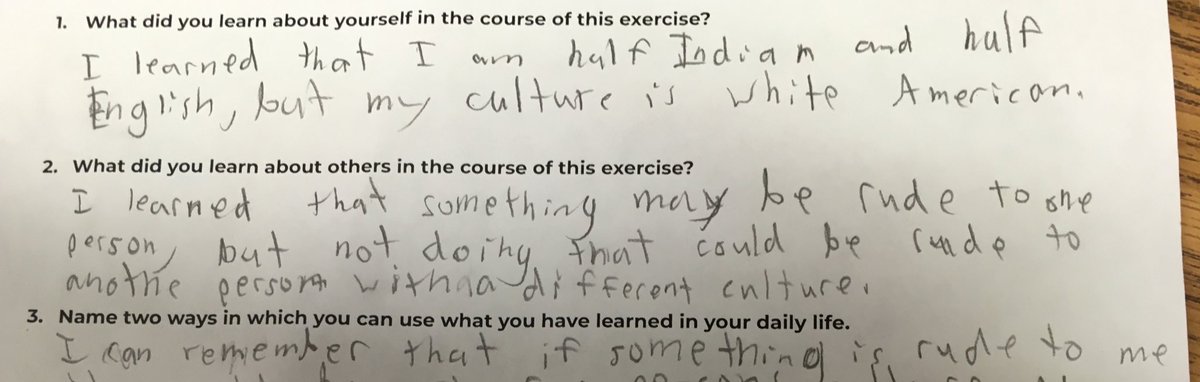 1. What did you learn about yourself in the course of this exercise?
I learned that I am half Indian and half
English, but my culture is white American.
2. What did you learn about others in the course of this exercise?
I learned that something may be rude to one
person, but not doing that could be rude to
anothe person with a different culture.
3. Name two ways in which you can use what you have learned in your daily life.
I can remember that if something is rude to me